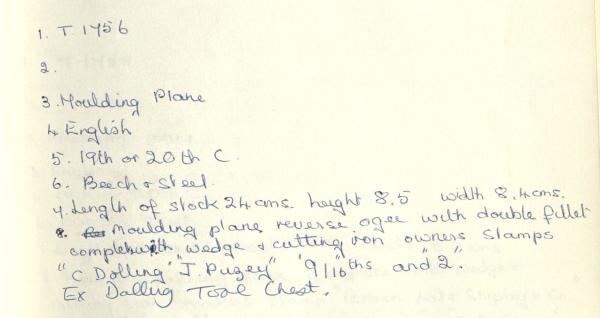 1. T. 1756
2.
3. Moulding Plane
4 English
5. 19th or 20th C.
6. Beech & Steel.
7. Length of stock 24 cms. height 8.5 width 8.4 cms.
8. Moulding plane reverse ogee with double fillet
complete with wedge & cutting iron owners stamps
"C Dolling" "J. Pugey" "9/16ths" and "2".
Ex Dalling Tool Chest.